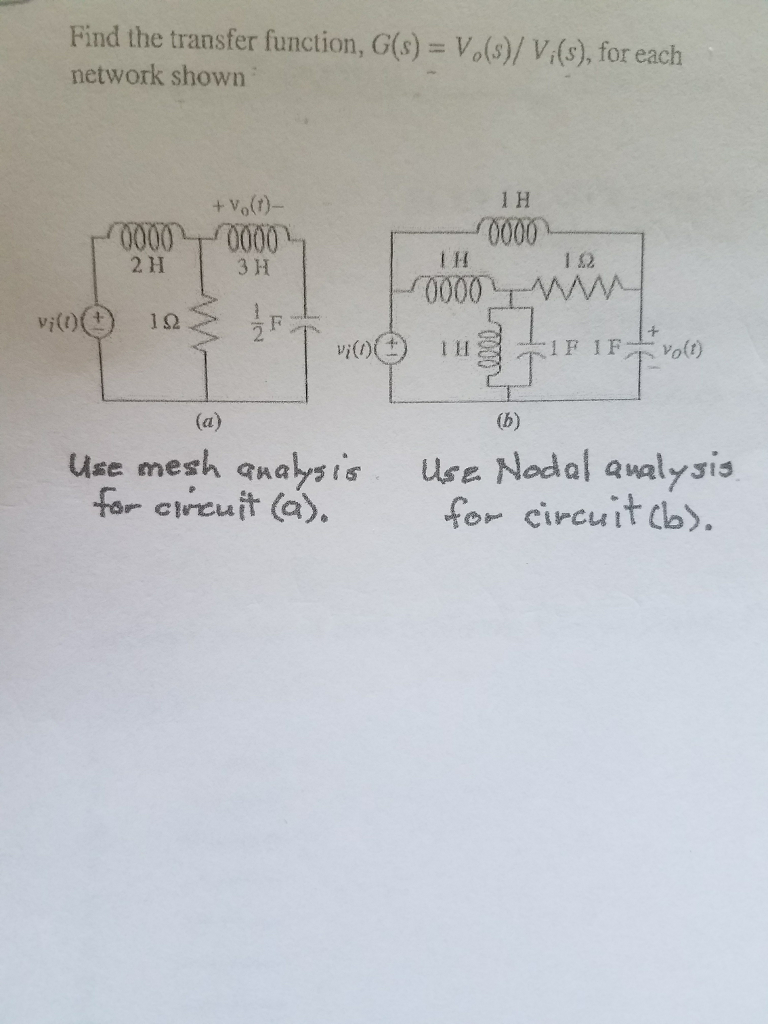 Find the transfer function, G(s) = Vₒ(s)/ Vᵢ(s), for each
network shown
+ vₒ(t)–
2 H
3 H
vᵢ(t)
+
–
1 Ω
1/2 F
(a)
1 H
1 H
1 Ω
vᵢ(t)
+
–
1 H
1 F
1 F
+
vₒ(t)
–
(b)
Use mesh analysis
for circuit (a).
Use Nodal analysis
for circuit (b).